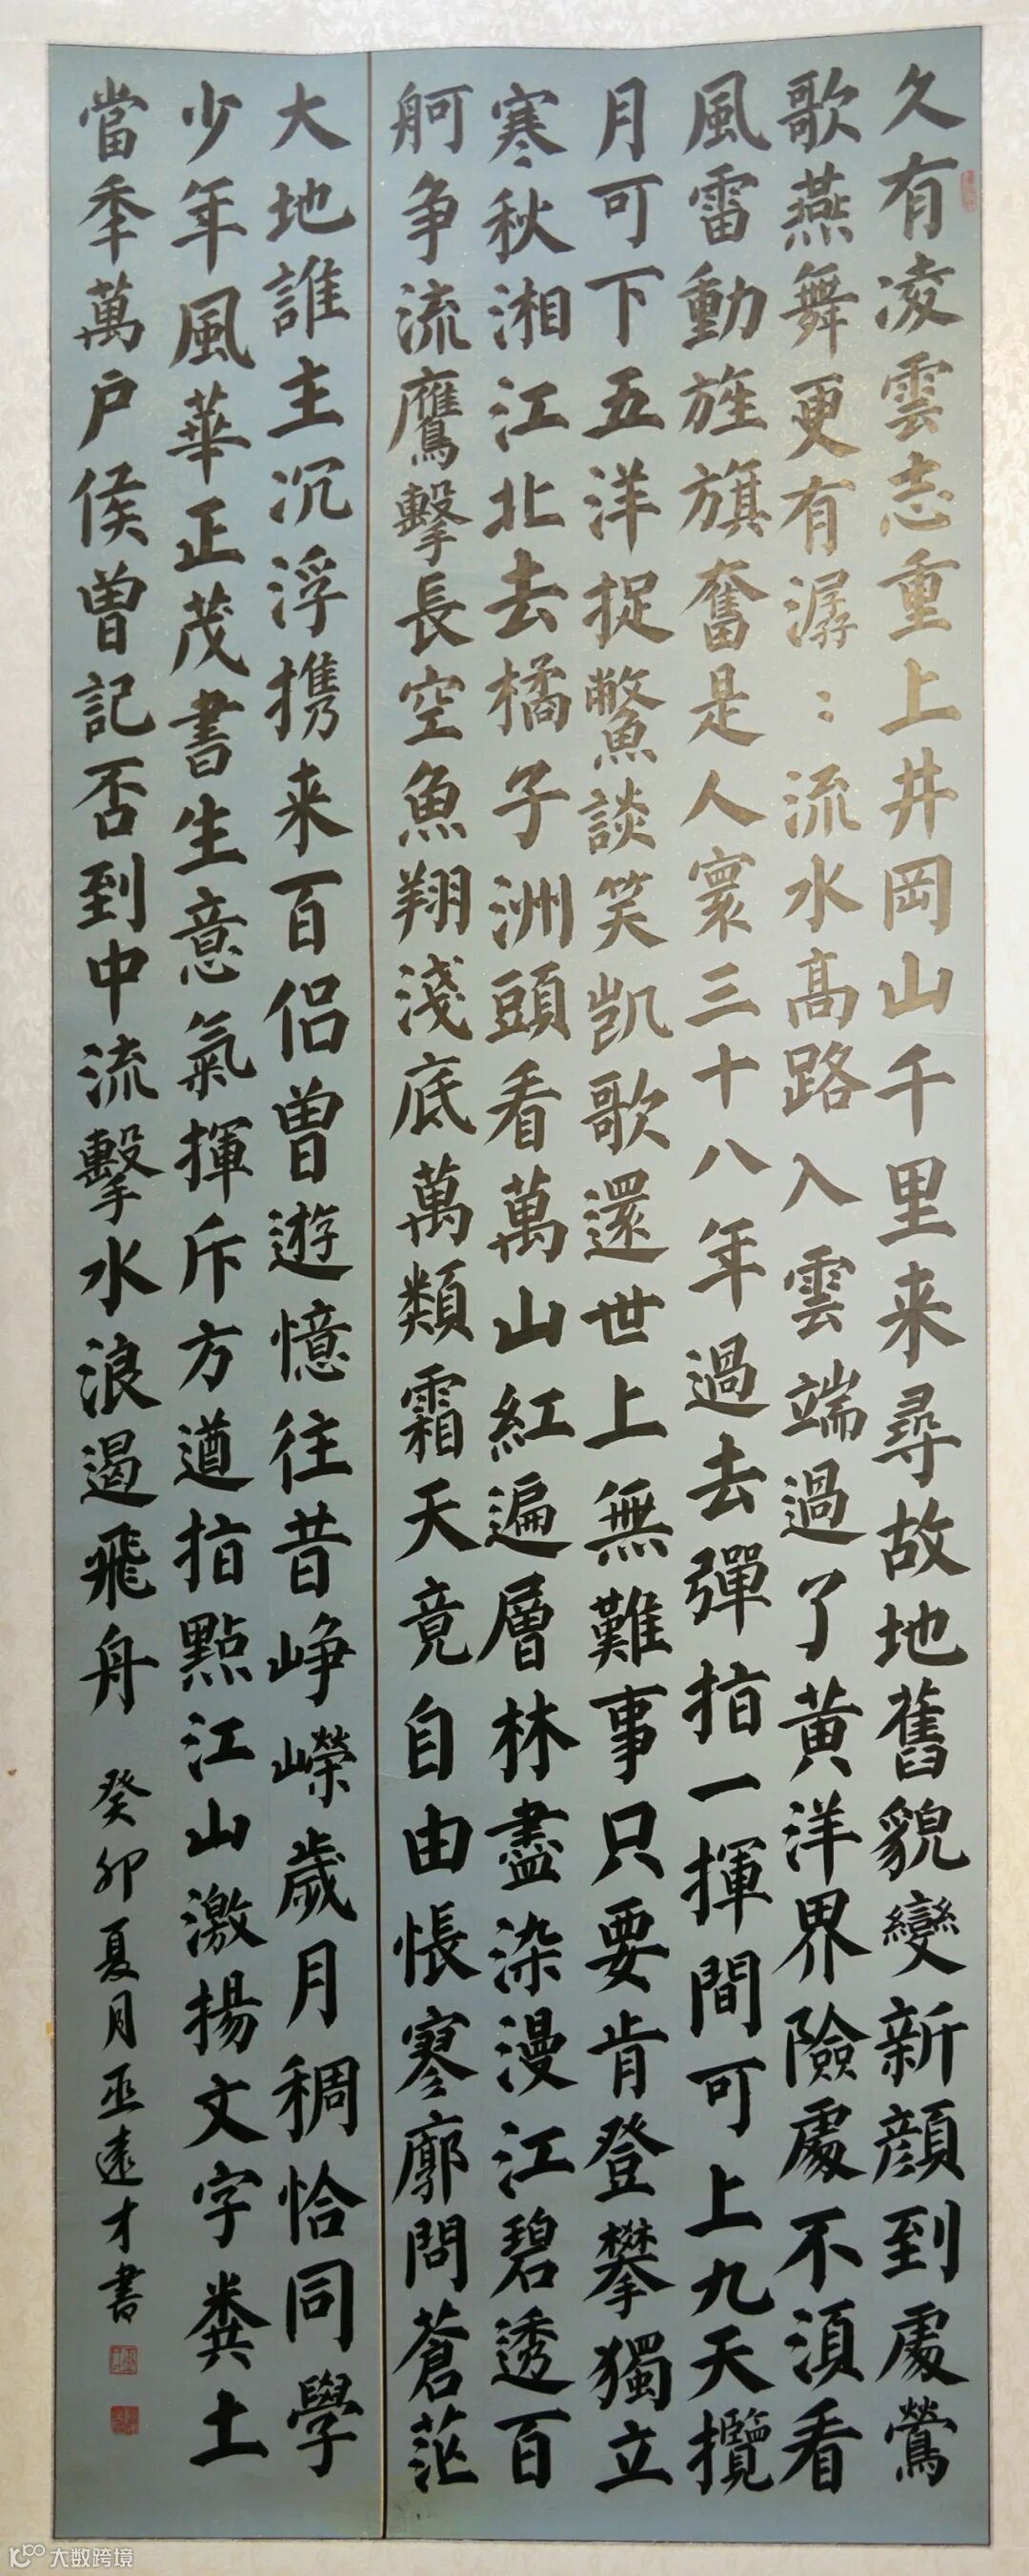 久有凌雲志重上井岡山千里来尋故地舊貌變新顔到處鶯
歌燕舞更有潺：流水高路入雲端過了黄洋界險處不湏看
風雷動旌旗奮是人寰三十八年過去彈指一揮間可上九天攬
月可下五洋捉鱉談笑凯歌還世上無難事只要肯登攀獨立
寒秋湘江北去橘子洲頭看萬山紅遍層林盡染漫江碧透百
舸争流鷹擊長空魚翔淺底萬類霜天竟自由悵寥廓問蒼茫
大地誰主沉浮携来百侣曾遊憶往昔崢嶸歲月稠恰同學
少年風華正茂書生意氣揮斥方遒指點江山激揚文字糞土
當秊萬户侯曾記否到中流擊水浪遏飛舟 癸卯夏月巫遠才書
大数跨境